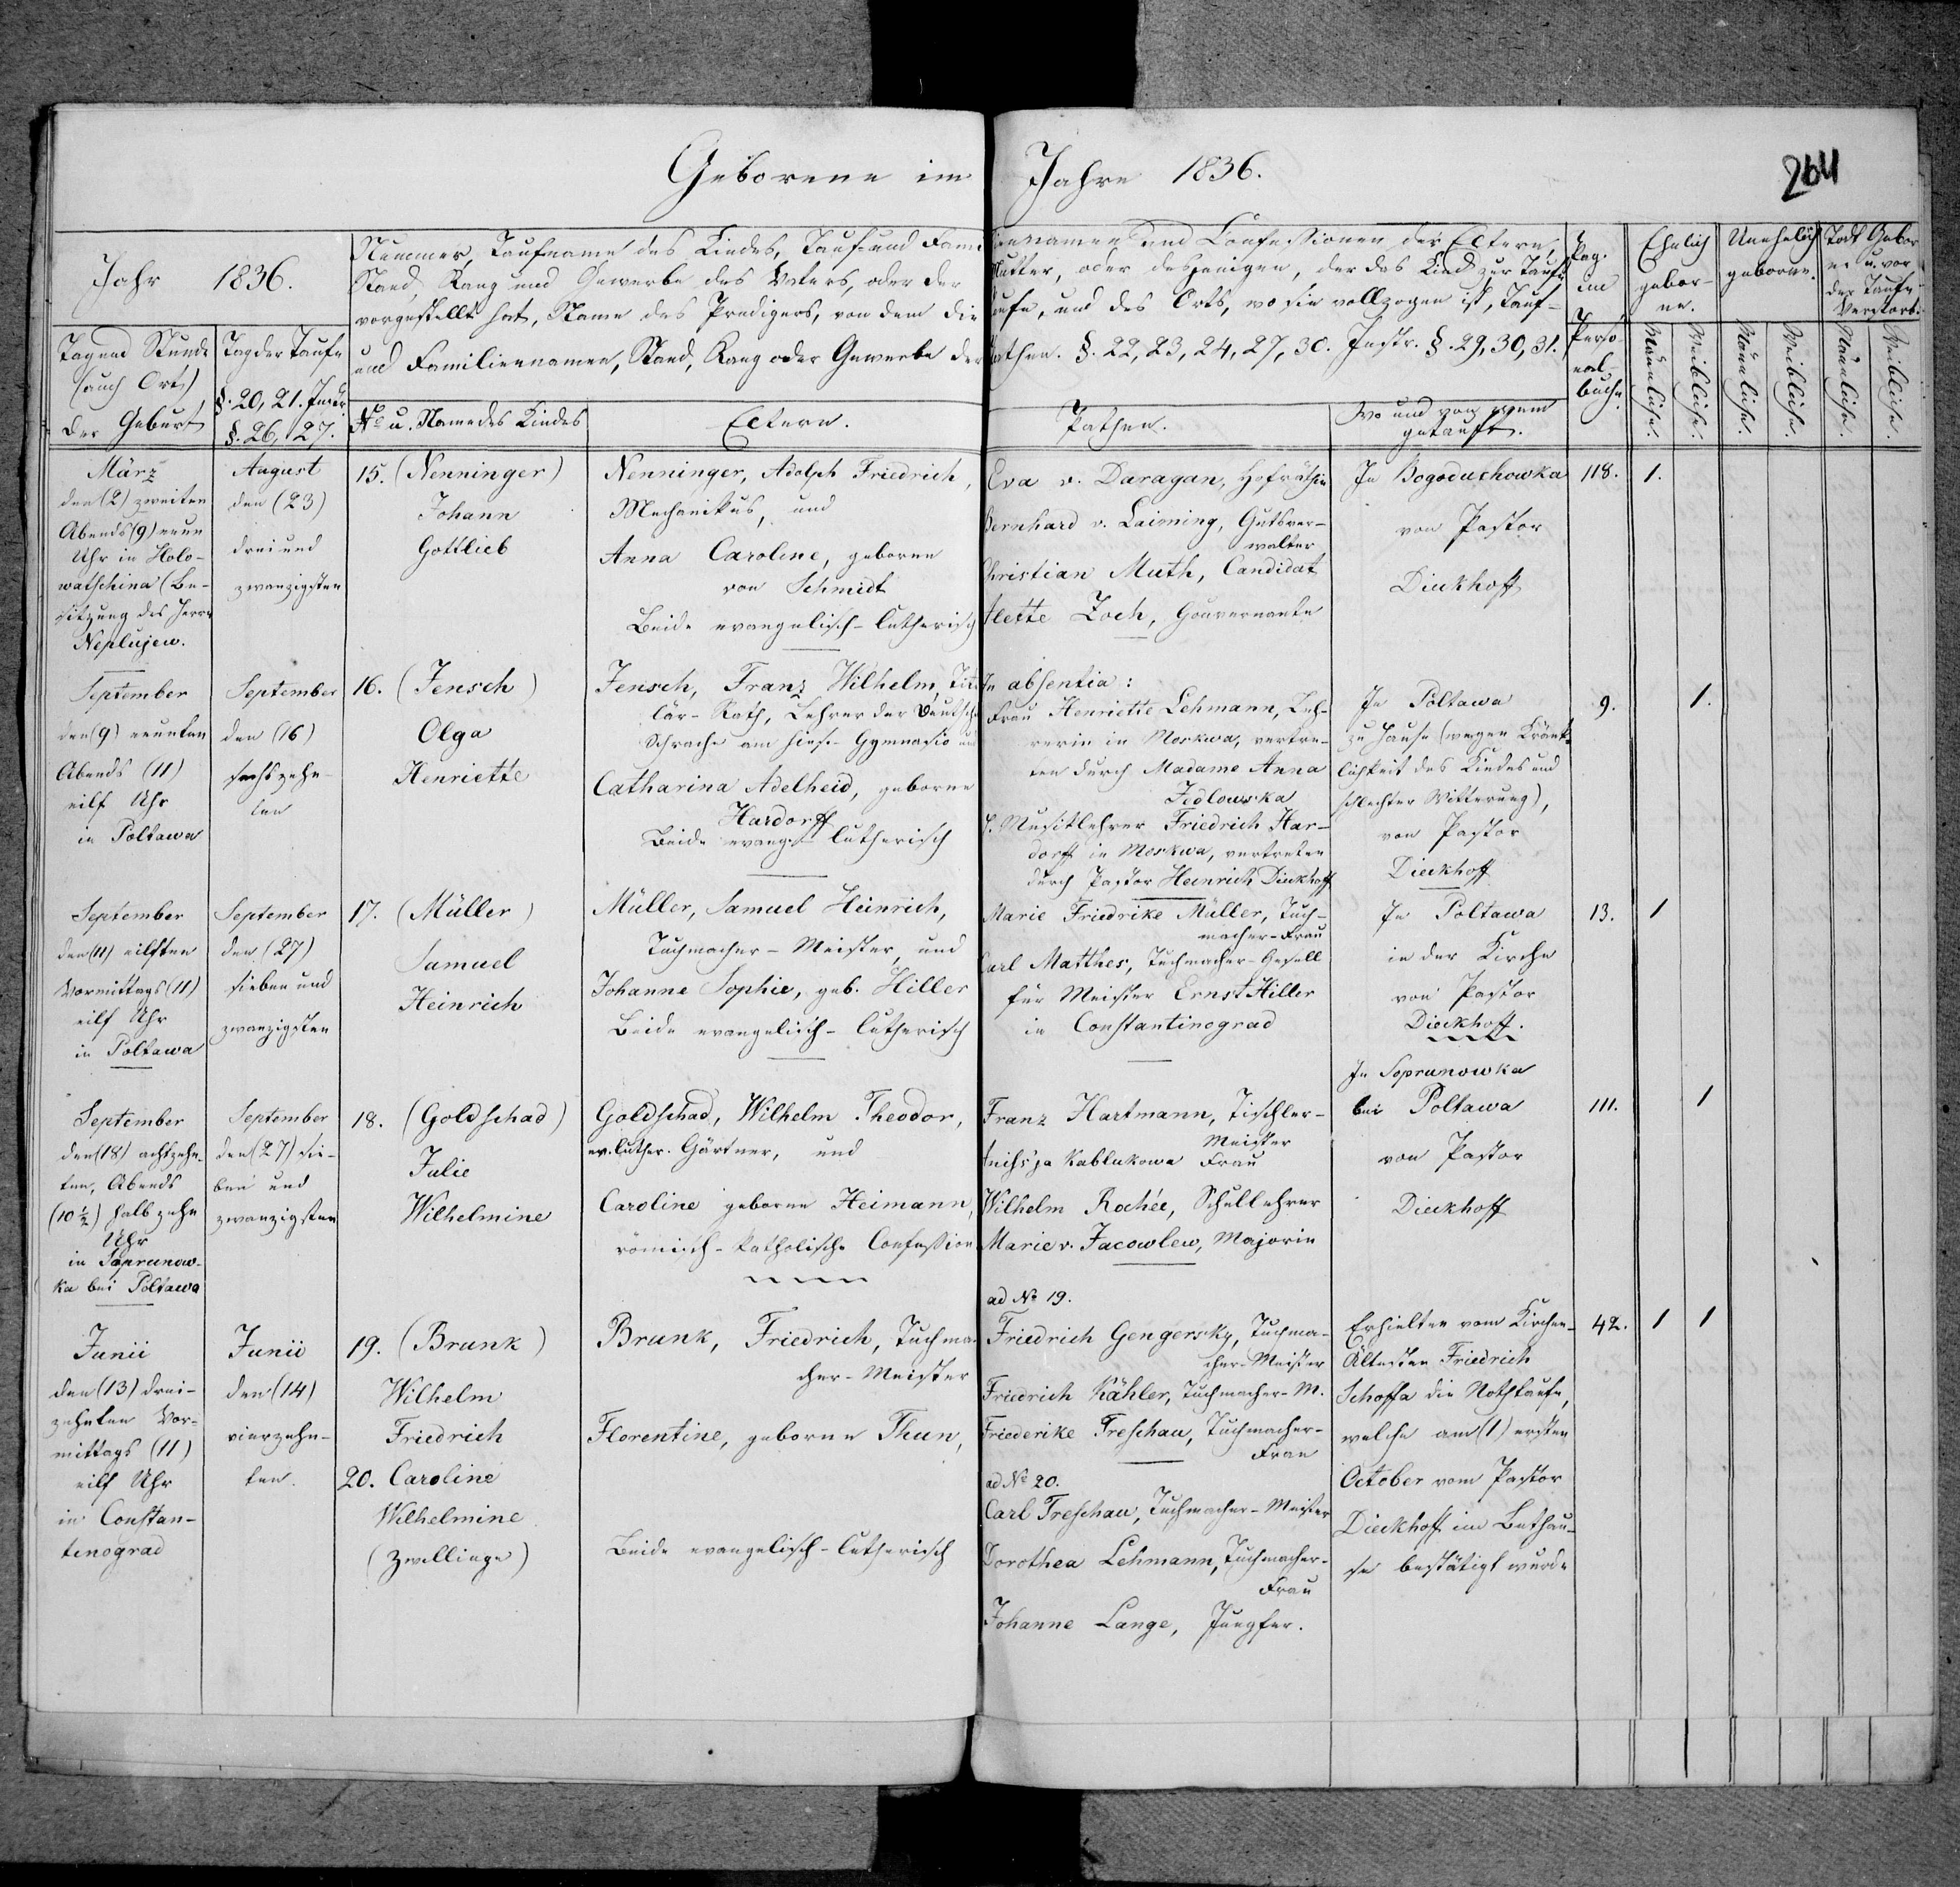 Geborene im Jahre 1836.
264
Jahr 1836.
Tag und Stunde
(auch Ort)
der Geburt
Tag der Taufe
§. 20, 21. Instr.
§. 26, 27.
Nummer, Taufname des Kindes, Tauf- und Familiennamen und Confessionen der Eltern,
Stand, Rang und Gewerbe des Vaters, oder der Mutter, oder desjenigen, der das Kind zur Taufe
vorgestellt hat, Name des Predigers, von dem die Taufe, und des Orts, wo sie vollzogen ist, Tauf-
und Familiennamen, Stand, Rang oder Gewerbe der Pathen. §. 22, 23, 24, 27, 30. Instr. §. 29, 30, 31.
No u. Name des Kindes
Eltern.
Pathen.
Wo und von wem
getauft.
Pag.
im
Perso
nal-
buche.
Ehelich
gebor-
ne.
Unehelich
geborne.
Todt Gebor
ne u. vor
der Taufe
Verstorb.
Männliche.
Weibliche.
Männliche.
Weibliche.
Männliche.
Weibliche.
März
den (2) zweiten
Abends (9) neun
Uhr in Holo-
watschina (Be-
sitzung des Herrn
Neplujew.
August
den (23)
drei und
zwanzigsten
15. (Nenninger)
Johann
Gottlieb
Nenninger, Adolph Friedrich,
Mechanikus, und
Anna Caroline, geborne
von Schmidt
Beide evangelisch-lutherisch
Eva v. Daragan, Hofräthin
Bernhard v. Laiming, Gutsver-
walter
Christian Muth, Candidat
Zoch, Gouvernante
In Bogoduchowka
von Pastor
Dieckhoff
118.
1.
September
den (9) neunten
Abends (11)
eilf Uhr
in Poltawa
September
den (16)
sechszehn-
ten
16. (Jensch)
Olga
Henriette
Jensch, Franz Wilhelm, Titu
lär-Rath, Lehrer der Deutsche
Sprache am hies. Gymnasio und
Catharina Adelheid, geborne
Hardorff
Beide evang. lutherisch
In absentia:
Frau Henriette Lehmann, Leh-
rerin in Moskwa, vertre-
ten durch Madame Anna
Jedlowska
H. Musiklehrer Friedrich Har-
dorff in Moskwa, vertreten
durch Pastor Heinrich Dieckhoff
In Poltawa
zu Hause (wegen Kränk-
lichkeit des Kindes und
schlechter Witterung),
von Pastor
Dieckhoff
9.
1.
September
den (11) eilften
Vormittags (11)
eilf Uhr
in Poltawa
September
den (27)
sieben und
zwanzigsten
17. (Müller)
Samuel
Heinrich
Müller, Samuel Heinrich,
Tuchmacher-Meister, und
Johanne Sophie, geb. Hiller
Beide evangelisch-lutherisch
Marie Friedrike Müller, Tuch-
macher-Frau
Carl Matthes, Tuchmacher-Gesell
für Meister Ernst Hiller
in Constantinograd
In Poltawa
in der Kirche
von Pastor
Dieckhoff.
13.
1
September
den (18) achtzehn-
ten, Abends
(10 ½) halb zehn
Uhr
in Soprunow-
ka bei Poltawa
September
den (27) sie-
ben und
zwanzigsten
18. (Goldschad)
Julie
Wilhelmine
Goldschad, Wilhelm Theodor,
ev. luther. Gärtner, und
Caroline geborne Heimann,
römisch-katholische Confession
Franz Hartmann, Tischler-
Meister
Kablukowa Frau
Wilhelm Rochée, Schullehrer
Marie v. Jacowlew, Majorin
In Soprunowka
bei Poltawa
von Pastor
Dieckhoff
111.
1
Junii
den (13) drei-
zehnten Vor-
mittags (11)
eilf Uhr
in Constan-
tinograd
Junii
den (14)
vierzehn-
ten.
19. (Brunk)
Wilhelm
Friedrich
20. Caroline
Wilhelmine
(Zwillinge)
Brunk, Friedrich, Tuchma-
cher-Meister
Florentine, geborne Thun,
Beide evangelisch-lutherisch
ad No 19.
Friedrich Gengersky, Tuchma-
cher-Meister
Friedrich Kähler, Tuchmacher-M.
Friederike Treschau, Tuchmacher-
Frau
ad No 20.
Carl Treschau, Tuchmacher-Meister
Dorothea Lehmann, Tuchmacher-
Frau
Johanne Lange, Jungfer.
Erhielten vom Kirchen-
Ältesten Friedrich
Schoffa die Nothtaufe,
welche am (1) ersten
October vom Pastor
Dieckhoff im Bethau-
se bestätigt wurde
42.
1
1